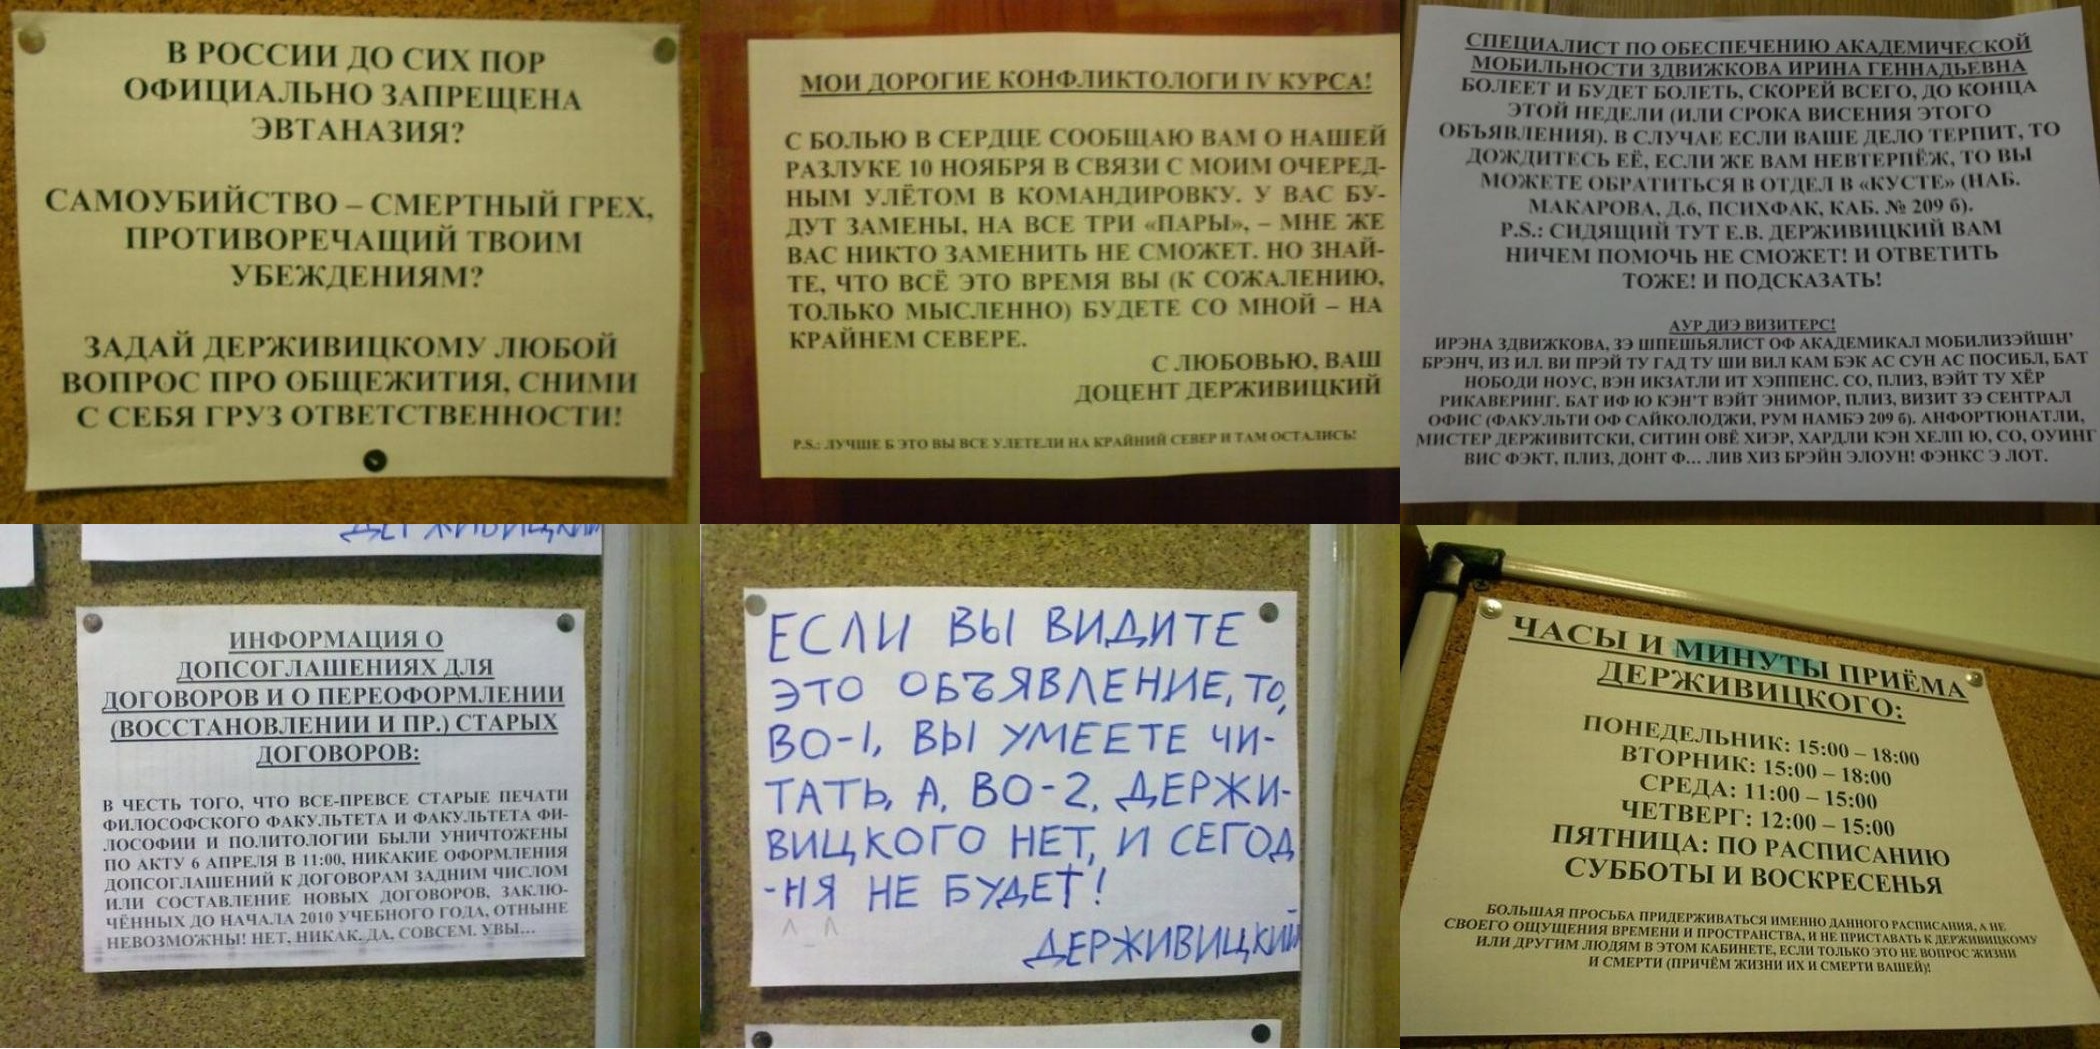 В РОССИИ ДО СИХ ПОР
ОФИЦИАЛЬНО ЗАПРЕЩЕНА
ЭВТАНАЗИЯ?
САМОУБИЙСТВО – СМЕРТНЫЙ ГРЕХ,
ПРОТИВОРЕЧАЩИЙ ТВОИМ
УБЕЖДЕНИЯМ?
ЗАДАЙ ДЕРЖИВИЦКОМУ ЛЮБОЙ
ВОПРОС ПРО ОБЩЕЖИТИЯ, СНИМИ
С СЕБЯ ГРУЗ ОТВЕТСТВЕННОСТИ!
МОИ ДОРОГИЕ КОНФЛИКТОЛОГИ IV КУРСА!
С БОЛЬЮ В СЕРДЦЕ СООБЩАЮ ВАМ О НАШЕЙ
РАЗЛУКЕ 10 НОЯБРЯ В СВЯЗИ С МОИМ ОЧЕРЕД-
НЫМ УЛЁТОМ В КОМАНДИРОВКУ. У ВАС БУ-
ДУТ ЗАМЕНЫ, НА ВСЕ ТРИ «ПАРЫ», – МНЕ ЖЕ
ВАС НИКТО ЗАМЕНИТЬ НЕ СМОЖЕТ. НО ЗНАЙ-
ТЕ, ЧТО ВСЁ ЭТО ВРЕМЯ ВЫ (К СОЖАЛЕНИЮ,
ТОЛЬКО МЫСЛЕННО) БУДЕТЕ СО МНОЙ – НА
КРАЙНЕМ СЕВЕРЕ.
С ЛЮБОВЬЮ, ВАШ
ДОЦЕНТ ДЕРЖИВИЦКИЙ
P.S.: ЛУЧШЕ Б ЭТО ВЫ ВСЕ УЛЕТЕЛИ НА КРАЙНИЙ СЕВЕР И ТАМ ОСТАЛИСЬ!
СПЕЦИАЛИСТ ПО ОБЕСПЕЧЕНИЮ АКАДЕМИЧЕСКОЙ
МОБИЛЬНОСТИ ЗДВИЖКОВА ИРИНА ГЕННАДЬЕВНА
БОЛЕЕТ И БУДЕТ БОЛЕТЬ, СКОРЕЙ ВСЕГО, ДО КОНЦА
ЭТОЙ НЕДЕЛИ (ИЛИ СРОКА ВИСЕНИЯ ЭТОГО
ОБЪЯВЛЕНИЯ). В СЛУЧАЕ ЕСЛИ ВАШЕ ДЕЛО ТЕРПИТ, ТО
ДОЖДИТЕСЬ ЕЁ, ЕСЛИ ЖЕ ВАМ НЕВТЕРПЁЖ, ТО ВЫ
МОЖЕТЕ ОБРАТИТЬСЯ В ОТДЕЛ В «КУСТЕ» (НАБ.
МАКАРОВА, Д.6, ПСИХФАК, КАБ. № 209 б).
P.S.: СИДЯЩИЙ ТУТ Е.В. ДЕРЖИВИЦКИЙ ВАМ
НИЧЕМ ПОМОЧЬ НЕ СМОЖЕТ! И ОТВЕТИТЬ
ТОЖЕ! И ПОДСКАЗАТЬ!
АУР ДИЭ ВИЗИТЕРС!
ИРЭНА ЗДВИЖКОВА, ЗЭ ШПЕШЬЯЛИСТ ОФ АКАДЕМИКАЛ МОБИЛИЗЭЙШН'
БРЭНЧ, ИЗ ИЛ. ВИ ПРЭЙ ТУ ГАД ТУ ШИ ВИЛ КАМ БЭК АС СУН АС ПОСИБЛ, БАТ
НОБОДИ НОУС, ВЭН ИКЗАТЛИ ИТ ХЭППЕНС. СО, ПЛИЗ, ВЭЙТ ТУ ХЁР
РИКАВЕРИНГ. БАТ ИФ Ю КЭН'Т ВЭЙТ ЭНИМОР, ПЛИЗ, ВИЗИТ ЗЭ СЕНТРАЛ
ОФИС (ФАКУЛЬТИ ОФ САЙКОЛОДЖИ, РУМ НАМБЭ 209 б). АНФОРТЮНАТЛИ,
МИСТЕР ДЕРЖИВИТСКИ, СИТИН ОВЁ ХИЭР, ХАРДЛИ КЭН ХЕЛП Ю, СО, ОУИНГ
ВИС ФЭКТ, ПЛИЗ, ДОНТ Ф... ЛИВ ХИЗ БРЭЙН ЭЛОУН! ФЭНКС Э ЛОТ.
ДЕРЖИВИЦКИЙ
ИНФОРМАЦИЯ О
ДОПСОГЛАШЕНИЯХ ДЛЯ
ДОГОВОРОВ И О ПЕРЕОФОРМЛЕНИИ
(ВОССТАНОВЛЕНИИ И ПР.) СТАРЫХ
ДОГОВОРОВ:
В ЧЕСТЬ ТОГО, ЧТО ВСЕ-ПРЕВСЕ СТАРЫЕ ПЕЧАТИ
ФИЛОСОФСКОГО ФАКУЛЬТЕТА И ФАКУЛЬТЕТА ФИ-
ЛОСОФИИ И ПОЛИТОЛОГИИ БЫЛИ УНИЧТОЖЕНЫ
ПО АКТУ 6 АПРЕЛЯ В 11:00, НИКАКИЕ ОФОРМЛЕНИЯ
ДОПСОГЛАШЕНИЙ К ДОГОВОРАМ ЗАДНИМ ЧИСЛОМ
ИЛИ СОСТАВЛЕНИЕ НОВЫХ ДОГОВОРОВ, ЗАКЛЮ-
ЧЁННЫХ ДО НАЧАЛА 2010 УЧЕБНОГО ГОДА, ОТНЫНЕ
НЕВОЗМОЖНЫ! НЕТ, НИКАК. ДА. СОВСЕМ. УВЫ...
ЕСЛИ ВЫ ВИДИТЕ
ЭТО ОБЪЯВЛЕНИЕ, ТО,
ВО-1, ВЫ УМЕЕТЕ ЧИ-
ТАТЬ, А, ВО-2, ДЕРЖИ-
ВИЦКОГО НЕТ, И СЕГОД
-НЯ НЕ БУДЕТ!
^_^
ДЕРЖИВИЦКИЙ
ЧАСЫ И МИНУТЫ ПРИЁМА
ДЕРЖИВИЦКОГО:
ПОНЕДЕЛЬНИК: 15:00 – 18:00
ВТОРНИК: 15:00 – 18:00
СРЕДА: 11:00 – 15:00
ЧЕТВЕРГ: 12:00 – 15:00
ПЯТНИЦА: ПО РАСПИСАНИЮ
СУББОТЫ И ВОСКРЕСЕНЬЯ
БОЛЬШАЯ ПРОСЬБА ПРИДЕРЖИВАТЬСЯ ИМЕННО ДАННОГО РАСПИСАНИЯ, А НЕ
СВОЕГО ОЩУЩЕНИЯ ВРЕМЕНИ И ПРОСТРАНСТВА, И НЕ ПРИСТАВАТЬ К ДЕРЖИВИЦКОМУ
ИЛИ ДРУГИМ ЛЮДЯМ В ЭТОМ КАБИНЕТЕ, ЕСЛИ ТОЛЬКО ЭТО НЕ ВОПРОС ЖИЗНИ
И СМЕРТИ (ПРИЧЁМ ЖИЗНИ ИХ И СМЕРТИ ВАШЕЙ)!